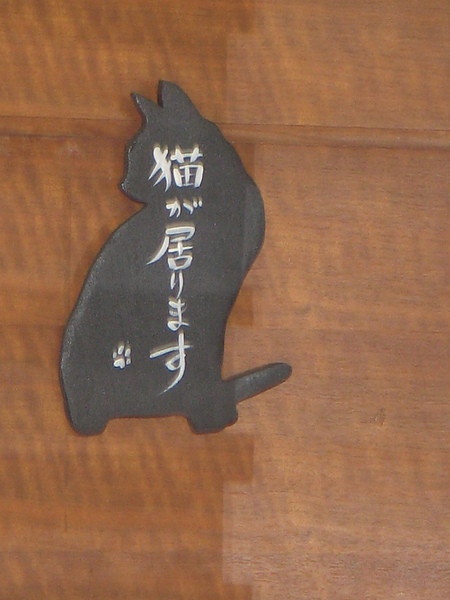 猫が居ります